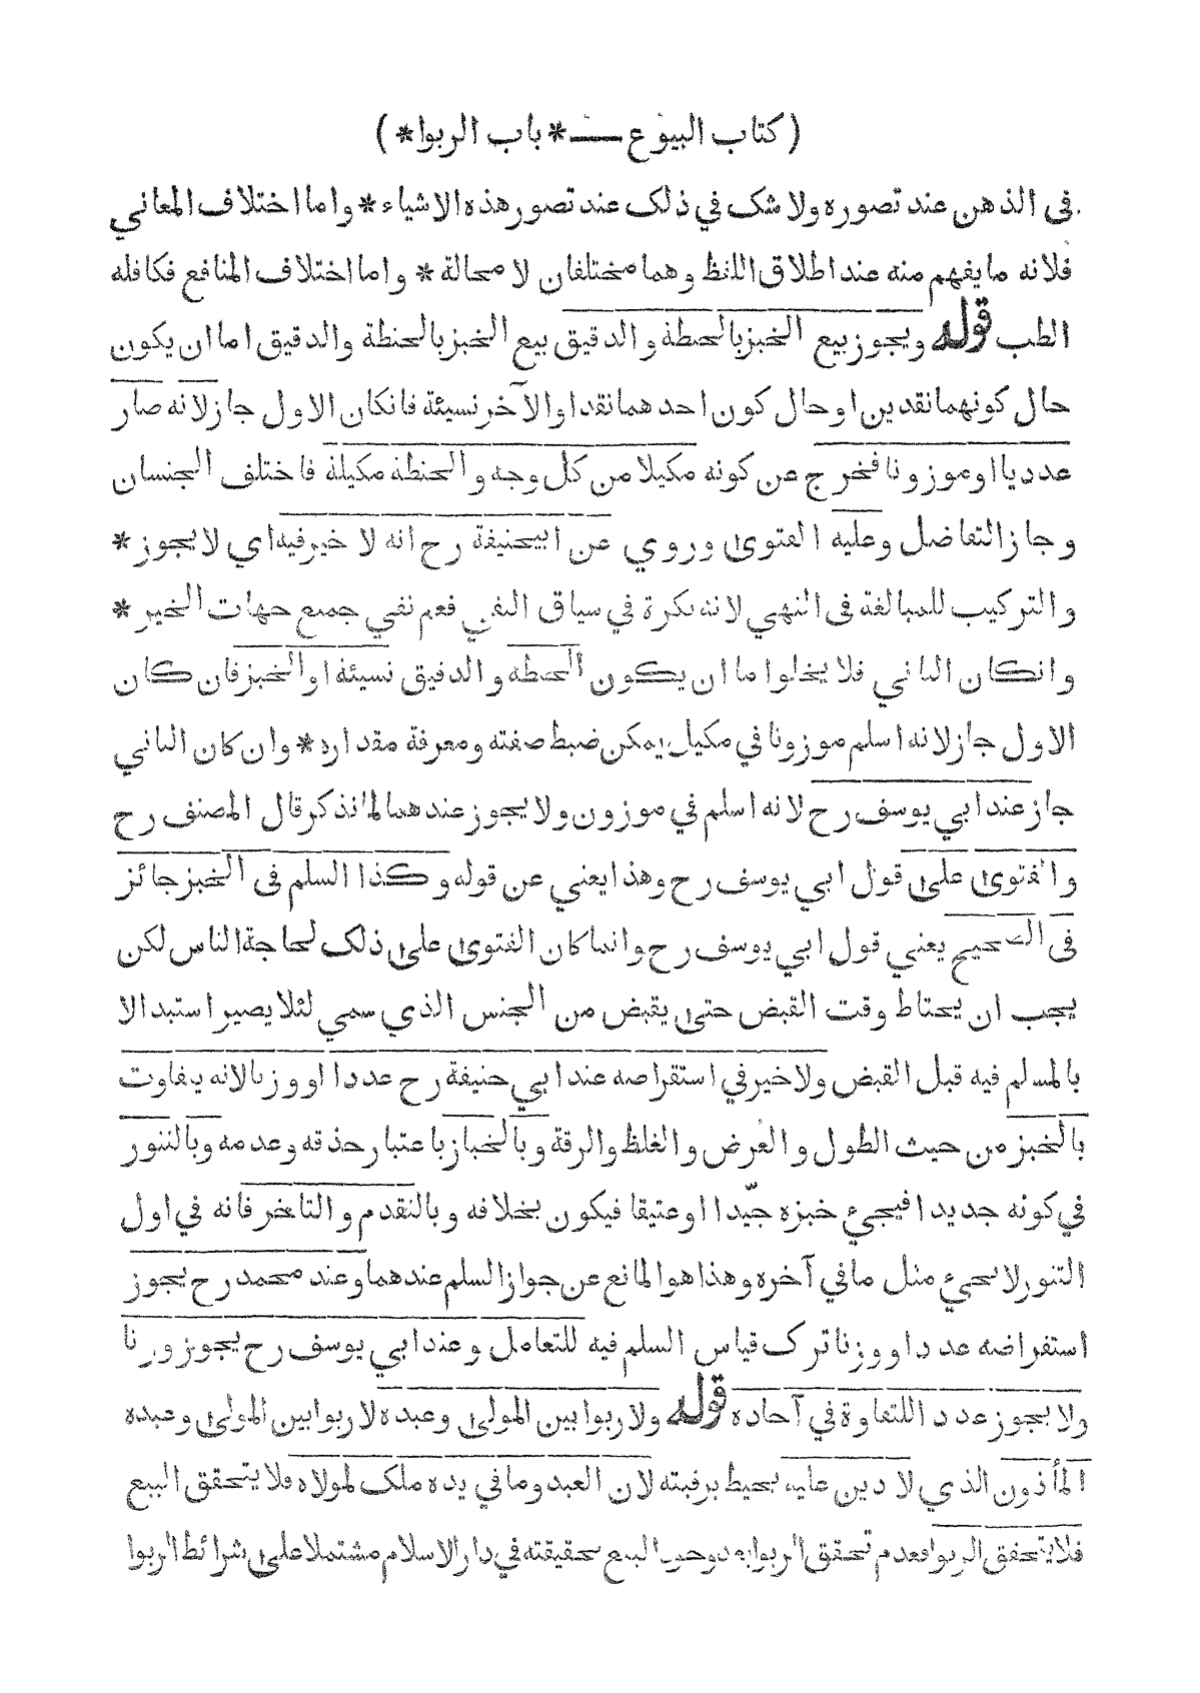 ( كتاب البيوع —— * باب الربوا * )
في الذهن عند تصوره ولا شك في ذلك عند تصور هذه الاشياء * واما اختلاف المعاني
فلانه ما يفهم منه عند اطلاق اللفظ وهما مختلفان لا محالة * واما اختلاف المنافع فكافله
الطب قوله ويجوز بيع الخبز بالحنطة والدقيق بيع الخبز بالحنطة والدقيق اما ان يكون
حال كونهما نقدين او حال كون احدهما نقدا والآخر نسيئة فانكان الاول جاز لانه صار
عدديا او موزونا فخرج عن كونه مكيلا من كل وجه والحنطة مكيلة فاختلف الجنسان
وجاز التفاضل وعليه الفتوى وروي عن ابيحنيفة رح انه لا خير فيه اي لا يجوز *
والتركيب للمبالغة في النهي لانه نكرة في سياق النفي فعم نفي جميع جهات الخير *
وانكان الثاني فلا يخلوا ما ان يكون الحنطة والدقيق نسيئة او الخبز فان كان
الاول جاز لانه اسلم موزونا في مكيل يمكن ضبط صفته ومعرفة مقداره * وان كان الثاني
جاز عند ابي يوسف رح لانه اسلم في موزون ولا يجوز عندهما لما نذكر قال المصنف رح
والفتوى على قول ابي يوسف رح وهذا يعني عن قوله وكذا السلم في الخبز جائز
في الصحيح يعني قول ابي يوسف رح وانما كان الفتوى على ذلك لحاجة الناس لكن
يجب ان يحتاط وقت القبض حتى يقبض من الجنس الذي سمي لئلا يصير استبدالا
بالمسلم فيه قبل القبض ولا خير في استقراضه عند ابي حنيفة رح عددا او وزنا لانه يتفاوت
بالخبز من حيث الطول والعرض والغلظ والرقة وبالخباز باعتبار حذقه وعدمه وبالتنور
في كونه جديدا فيجيء خبزه جيّدا او عتيقا فيكون بخلافه وبالتقدم والتاخر فانه في اول
التنور لا يجيء مثل ما في آخره وهذا هو المانع عن جواز السلم عندهما وعند محمد رح يجوز
استقراضه عددا ووزنا ترك قياس السلم فيه للتعامل وعند ابي يوسف رح يجوز وزنا
ولا يجوز عددا للتفاوة في آحاده قوله ولا ربوا بين المولى وعبده لا ربوا بين المولى وعبده
المأذون الذي لا دين عليه يحيط برقبته لان العبد وما في يده ملك لمولاه فلا يتحقق البيع
فلا يتحقق الربوا فعدم تحقق الربوا وجود البيع بحقيقته في دار الاسلام مشتملا على شرائط الربوا